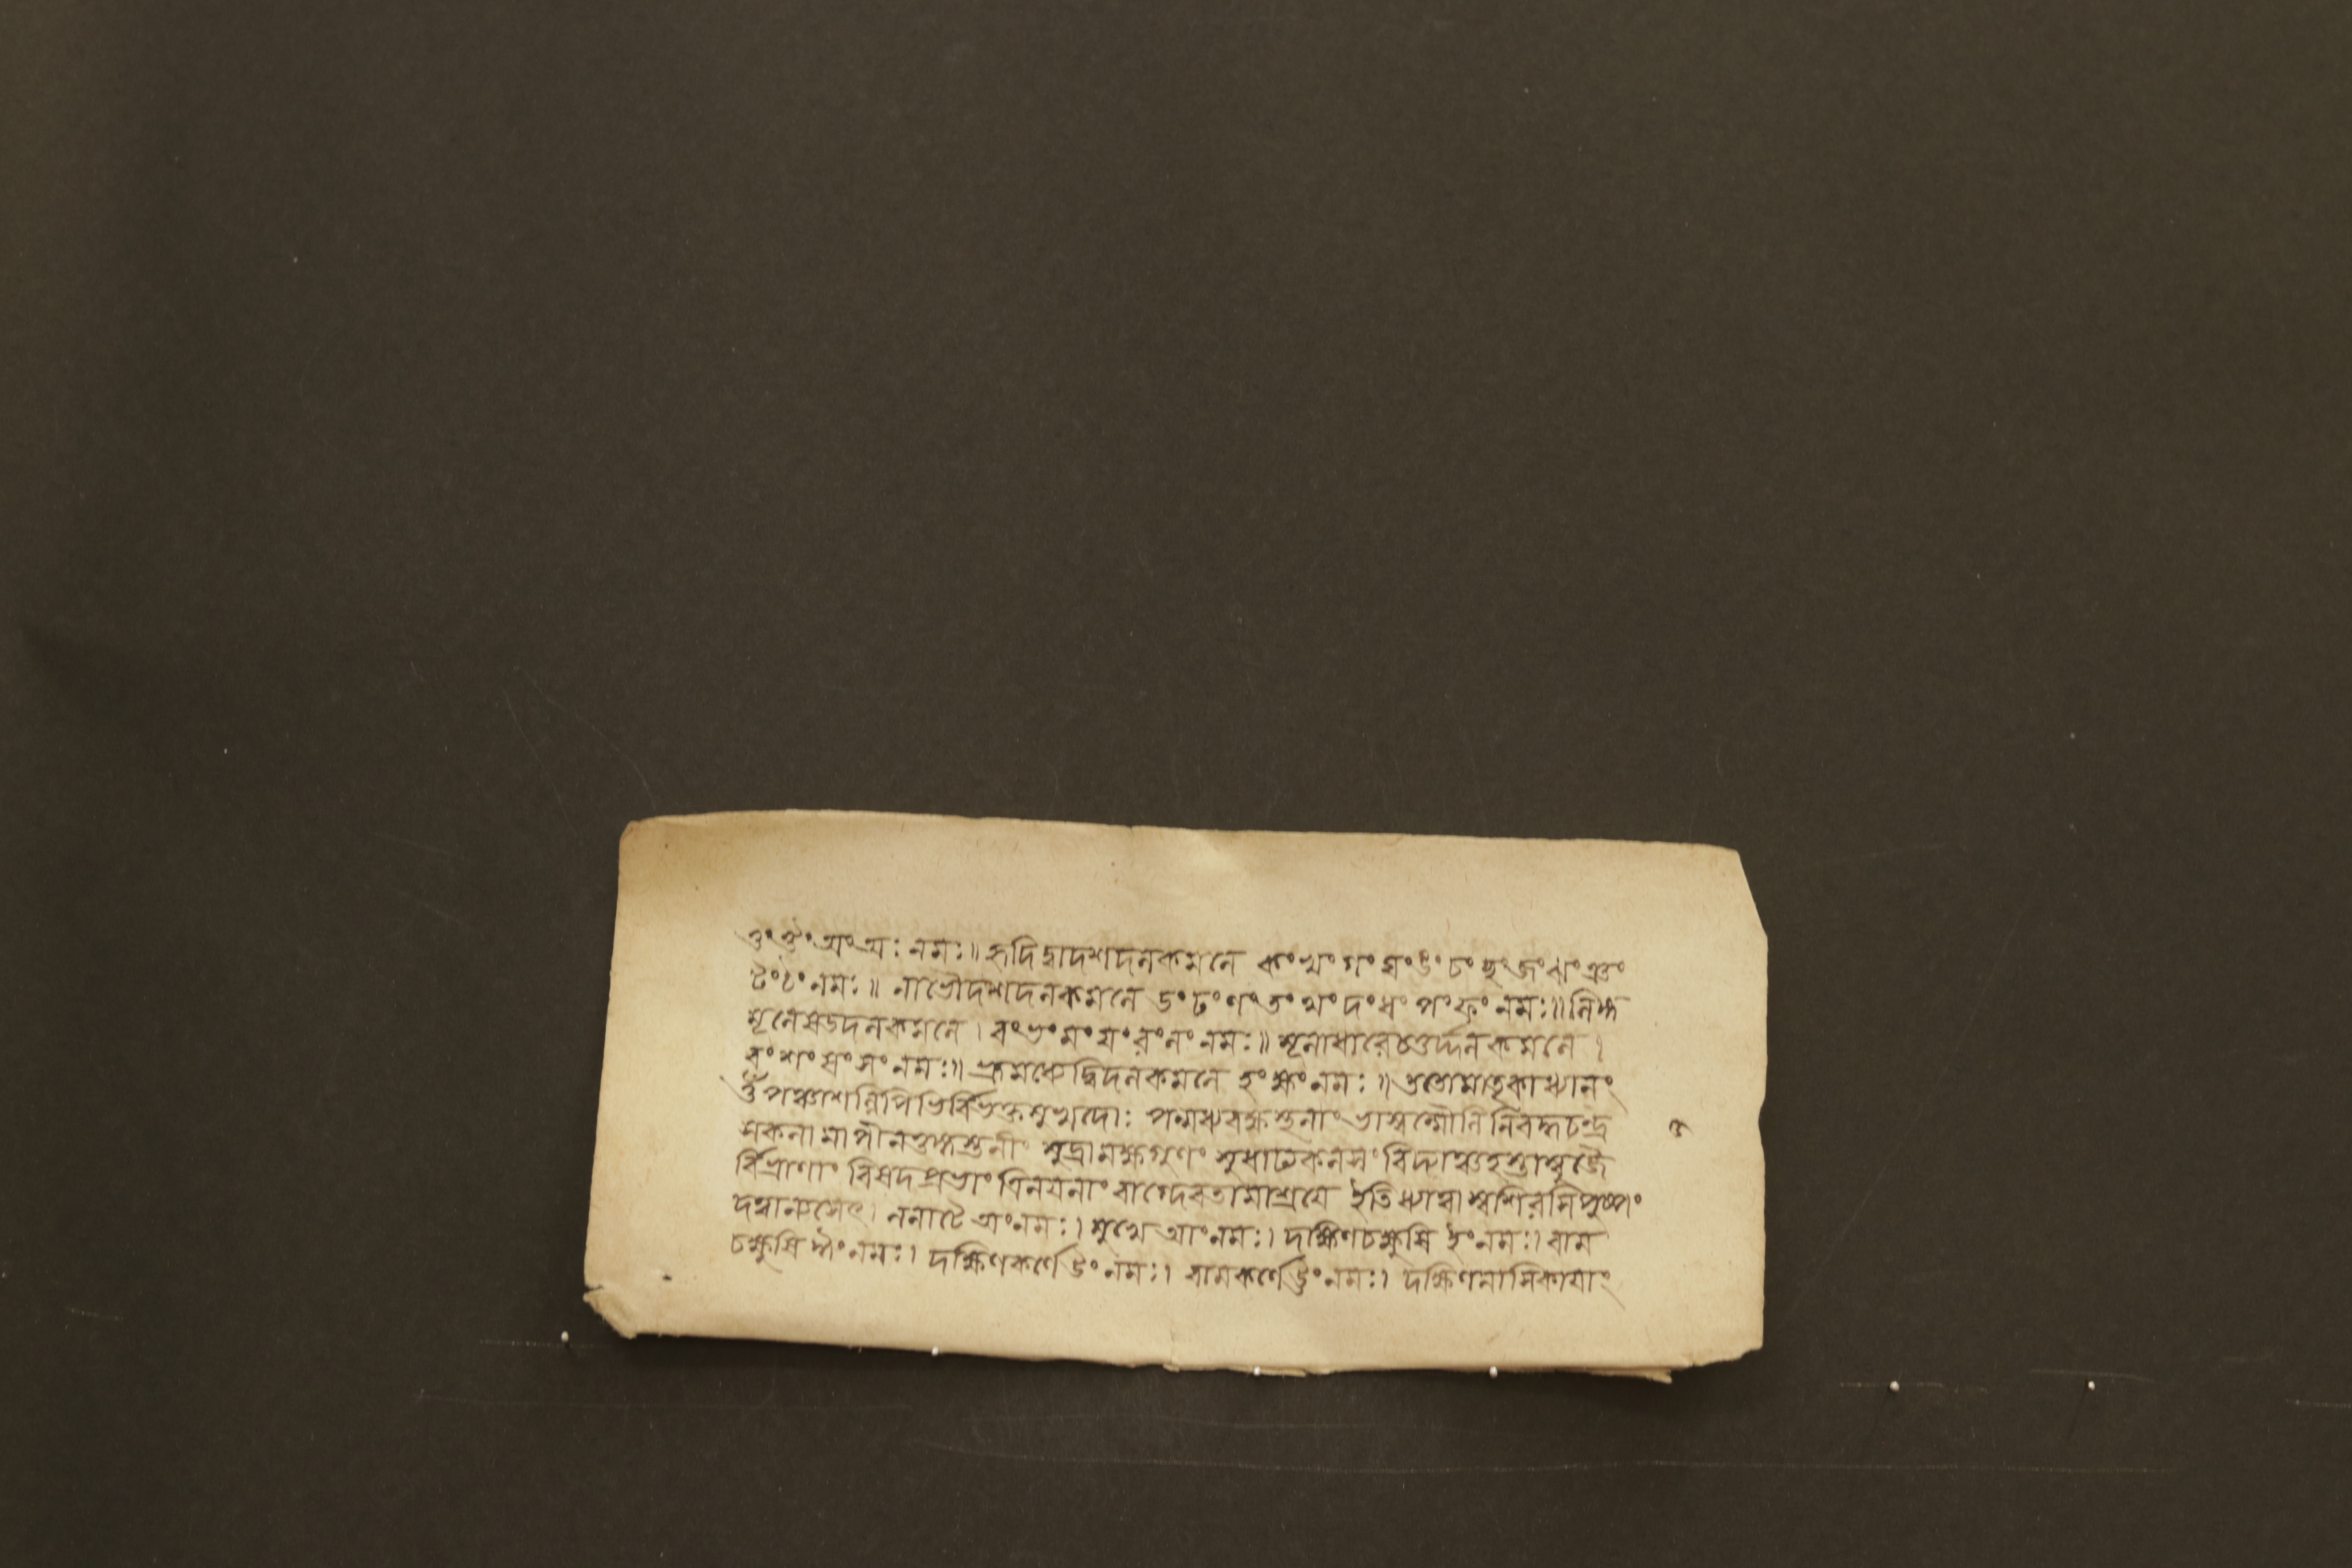 ওং ঔং অং অঃ নমঃ॥ হৃদি দ্বাদশদলকমলে কং খং গং ঘং ঙং চং ছং জং ঝং ঞং
টং ঠং নমঃ॥ নাভৌ দশদলকমলে ডং ঢং ণং তং থং দং ধং পং ফং নমঃ॥ লিঙ্গ
মূলে ষড্দলকমলে। বং ভং মং যং রং লং নমঃ॥ মূলাধারে চতুর্দ্দলকমলে।
বং শং ষং সং নমঃ॥ ভ্রূমধ্যে দ্বিদলকমলে হং ক্ষং নমঃ॥ ততো মাতৃকাধ্যানং
ওঁ পঞ্চাশল্লিপিভির্বিভক্তমুখদোঃ পন্মধ্যবক্ষস্থলাং ভাস্বন্মৌলিনিবদ্ধচন্দ্র
শকলামাপীনতুঙ্গস্তনীং মুদ্রামক্ষগুণং সুধাঢ্যকলসং বিদ্যাঞ্চ হস্তাম্বুজৈ
র্বিভ্রাণাং বিষদপ্রভাং ত্রিনয়নাং বাগ্দেবতামাশ্রয়ে ইতি ধ্যাত্বা স্বশিরসি পুষ্পং
দত্বা ন্যসেৎ। ললাটে অং নমঃ। মুখে আং নমঃ। দক্ষিণচক্ষুষি ইং নমঃ। বাম
চক্ষুষি ঈং নমঃ। দক্ষিণকর্ণে উং নমঃ। বামকর্ণে ঊং নমঃ। দক্ষিণনাসিকায়াং